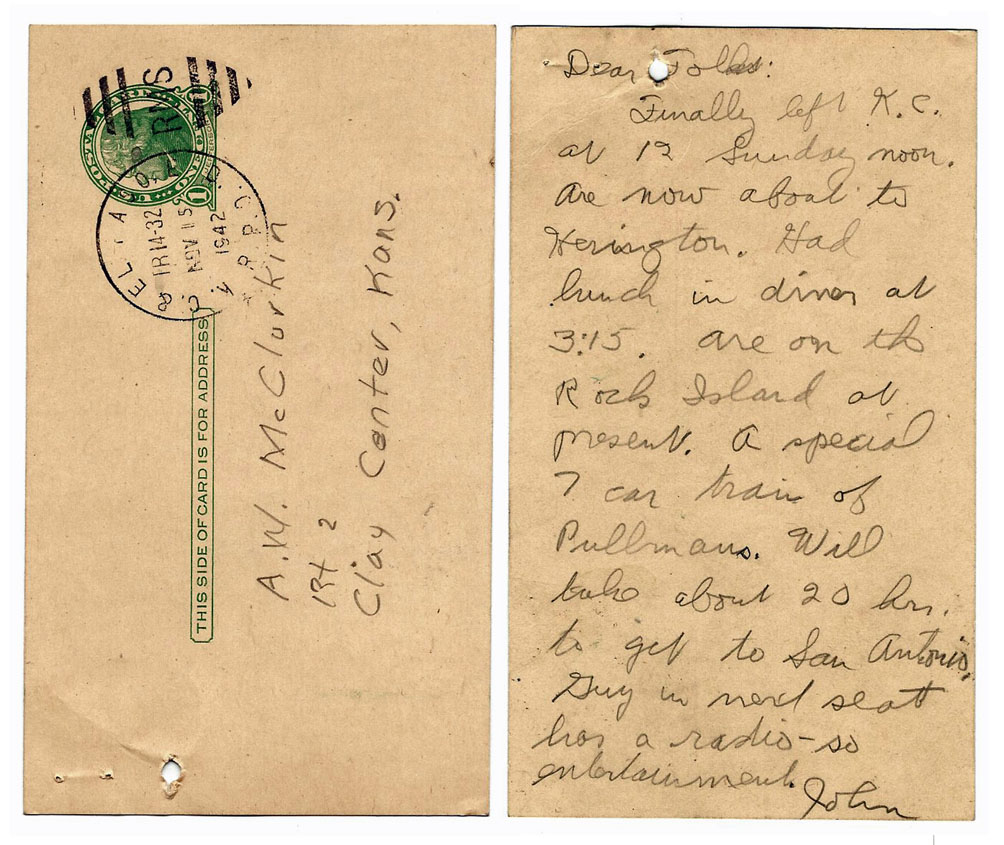 THIS SIDE OF CARD IS FOR ADDRESS
TR 14-32
NOV 15
1942
R.P.O.
A.W. McClurkin
Rt 2
Clay Center, Kans.
Dear Folks:
Finally left K.C.
at 12 Sunday noon.
Are now about to
Herington. Had
lunch in diner at
3:15. Are on the
Rock Island at
present. A special
7 car train of
Pullmans. Will
take about 20 hrs.
to get to San Antonio.
Guy in next seat
has a radio-so
entertainment.
John